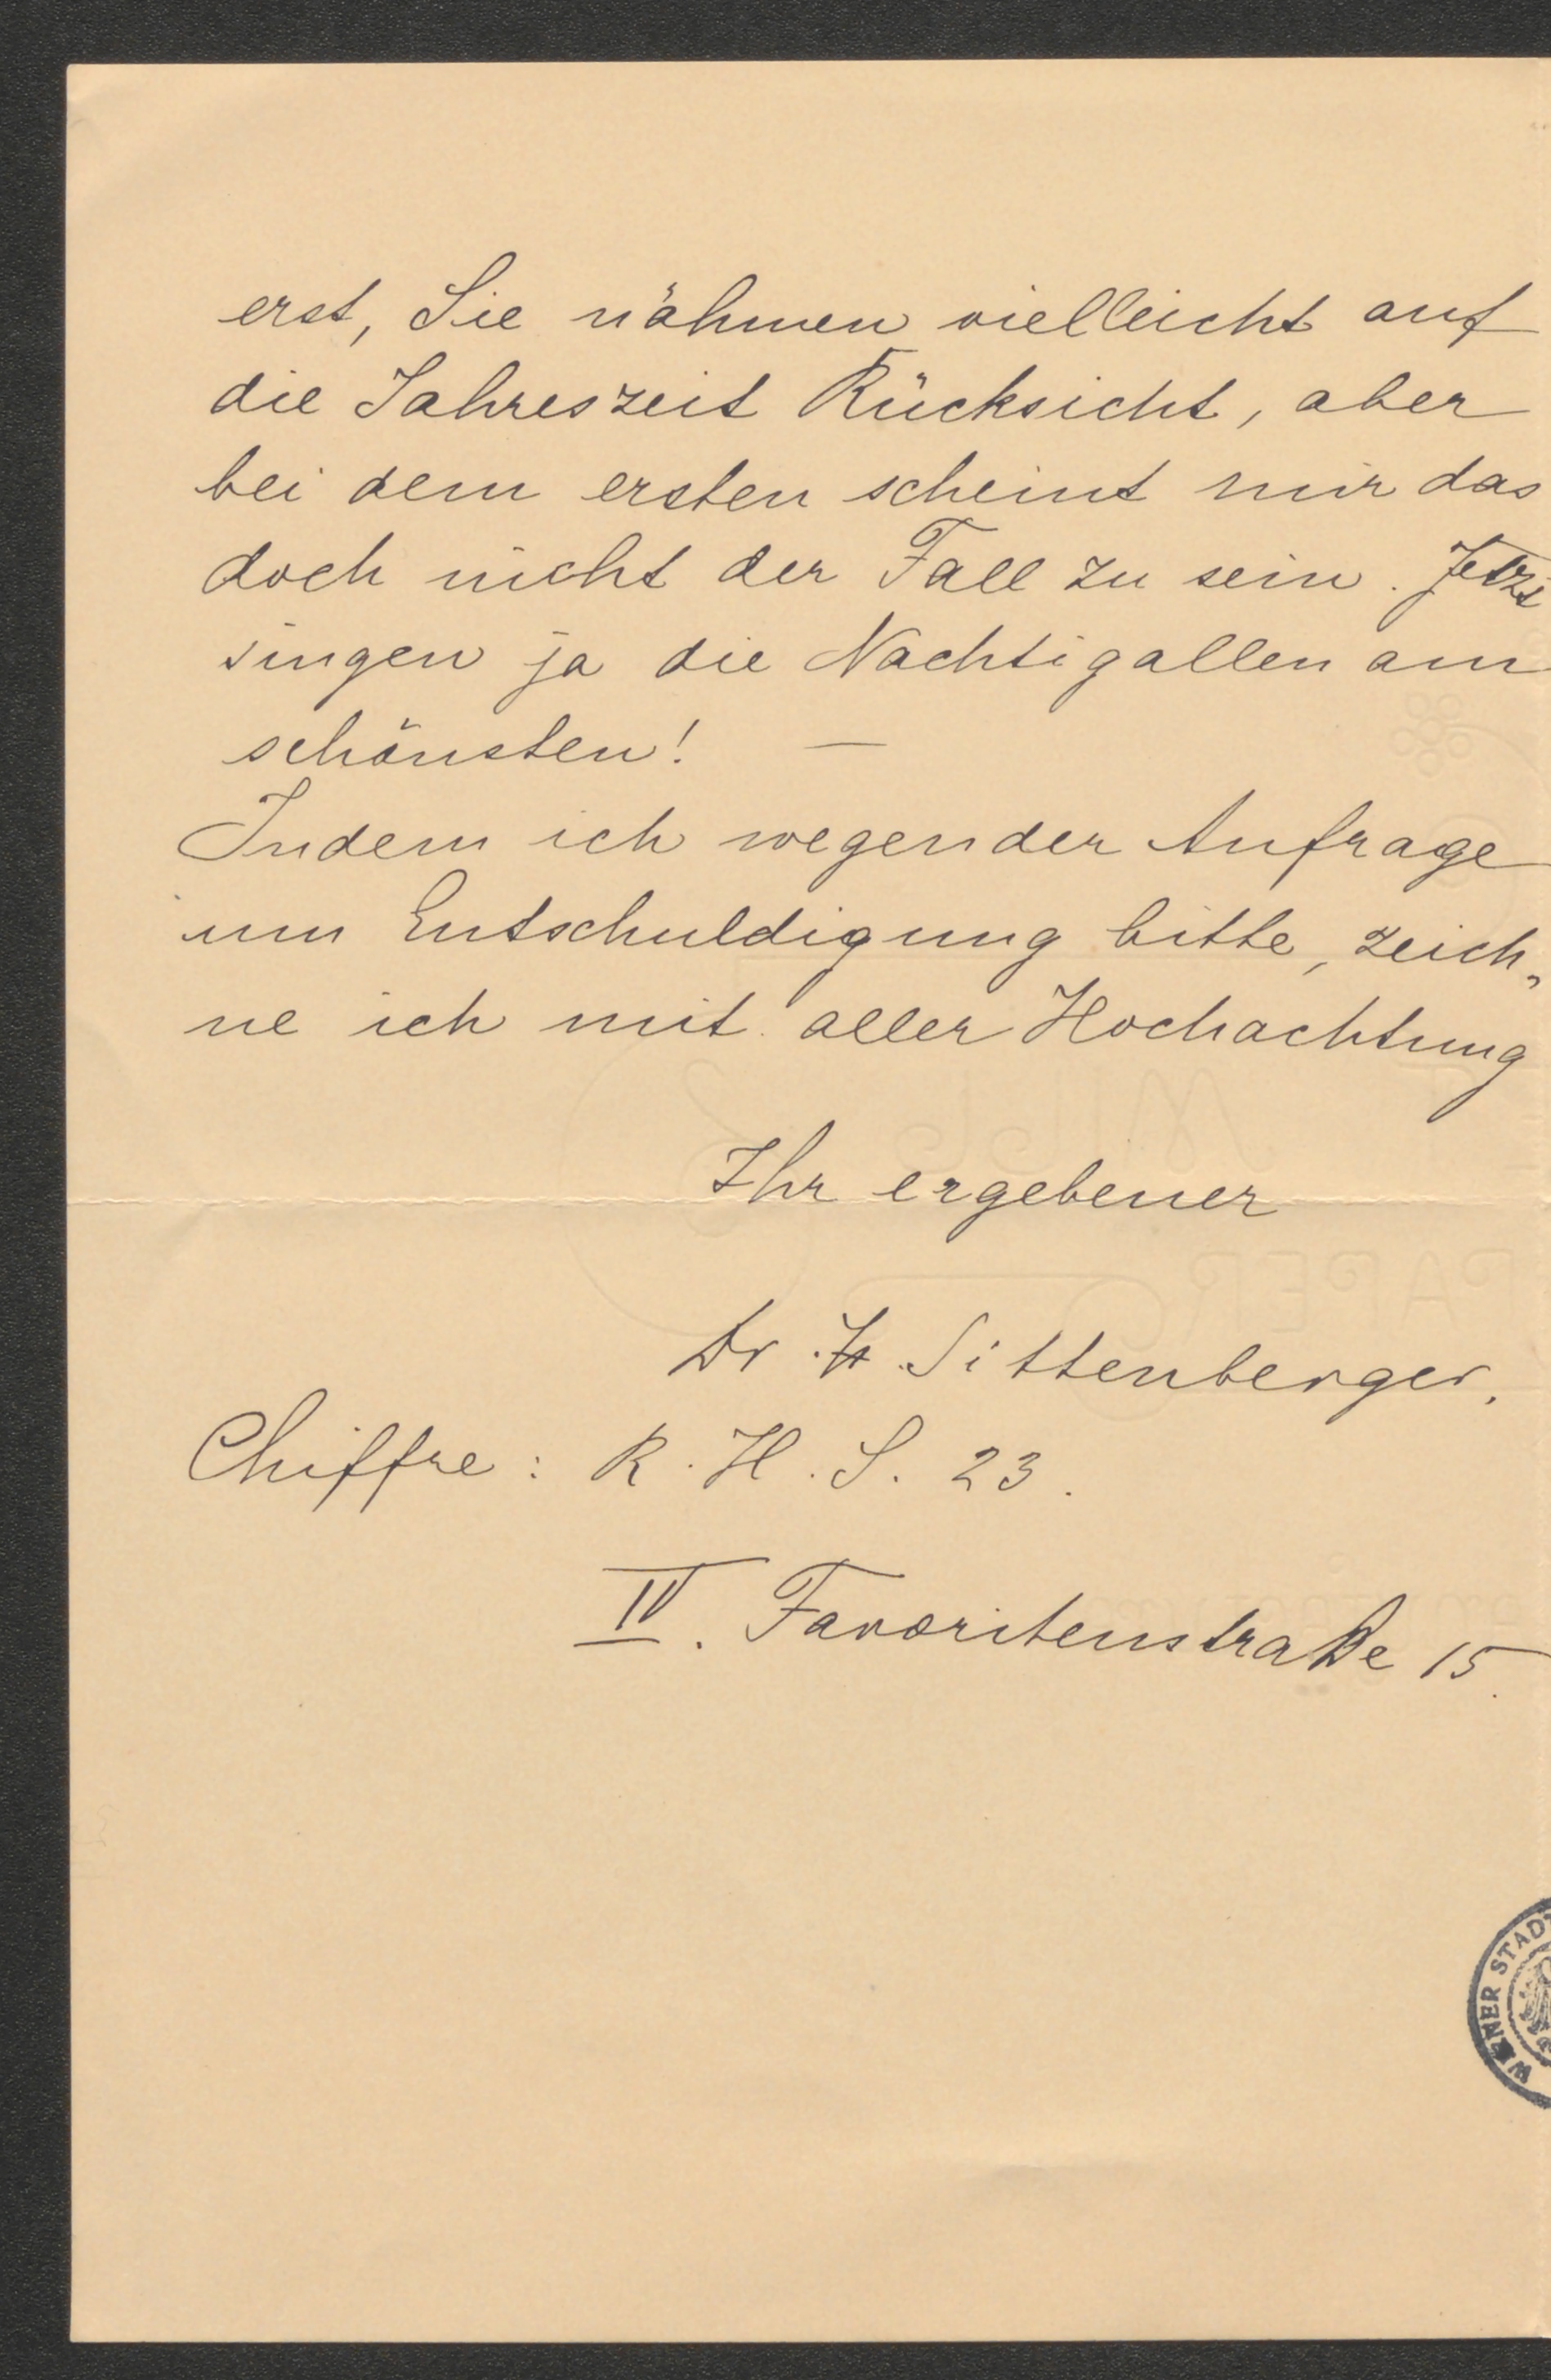 erst, Sie nähmen vielleicht auf
die Jahreszeit Rücksicht, aber
bei dem ersten scheint mir das
doch nicht der Fall zu sein. Jetzt
singen ja die Nachtigallen am
schönsten! —
Indem ich wegen der Anfrage
um Entschuldigung bitte, zeich„
ne ich mit aller Hochachtung
Ihr ergebener
Dr. H. Sittenberger.
Chiffre: R. H. S. 23.
IV. Favoritenstraße 15.
MILL
PAPER
WIENER STADT